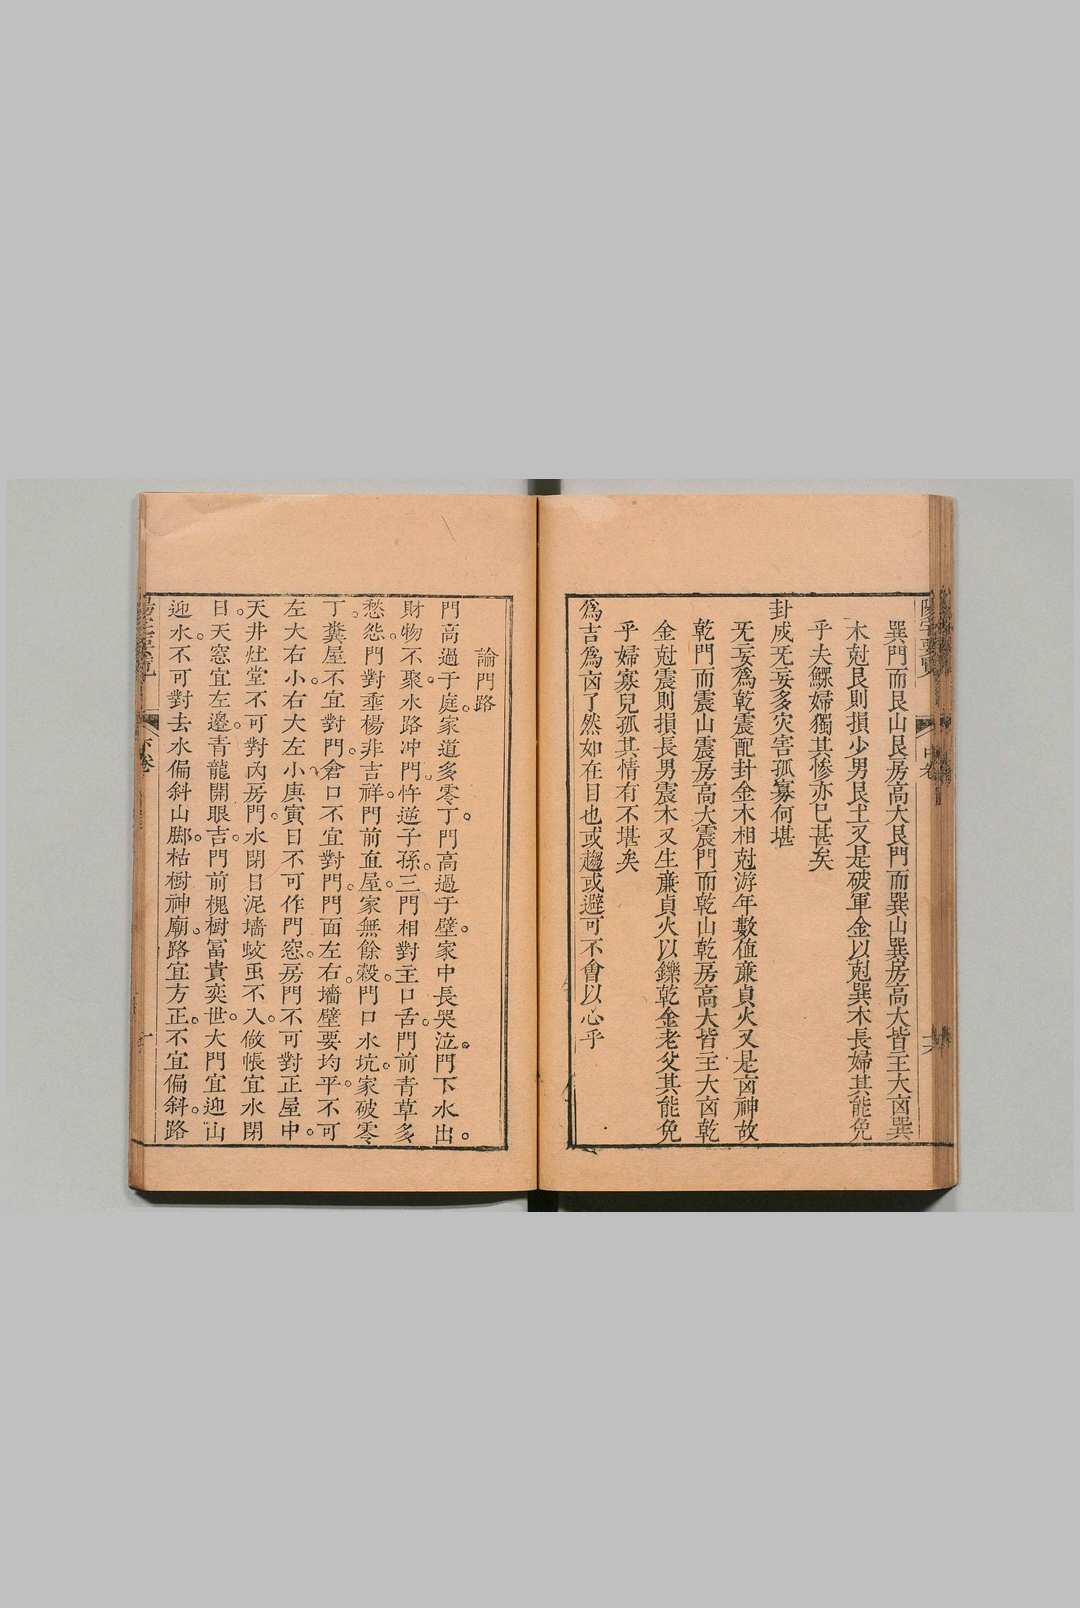 巽門而艮山艮房高大艮門而巽山巽房高大皆主大凶巽
木尅艮則損少男艮土又是破軍金以尅巽木長婦其能免
乎夫鰥婦獨其慘亦已甚矣
卦成旡妄多灾害孤寡何堪
旡妄爲乾震配卦金木相尅游年數值亷貞火又是凶神故
乾門而震山震房高大震門而乾山乾房高大皆主大凶乾
金尅震則損長男震木又生亷貞火以鑠乾金老父其能免
乎婦寡兒孤其情有不堪矣
爲吉爲凶了然如在目也或趨或避可不會以心乎
中卷
論門路
門高過于庭。家道多零丁。門高過于壁。家中長哭泣。門下水出。
財物不聚。水路冲門。忤逆子孫。三門相對主口舌。門前青草多
愁怨。門對垂楊非吉祥。門前直屋。家無餘穀。門口水坑。家破零
丁。糞屋不宜對門。倉口不宜對門。門面左右。墻壁要均平。不可
左大右小。右大左小。庚寅日不可作門窓。房門不可對正屋中。
天井灶堂不可對內房門。水閉日泥墻。蚊虫不入。做帳宜水閉
日。天窓宜左邊。青龍開眼吉。門前槐樹。富貴奕世。大門宜迎山
迎水。不可對去水偏斜山脚。枯樹神廟。路宜方正。不宜偏斜。路